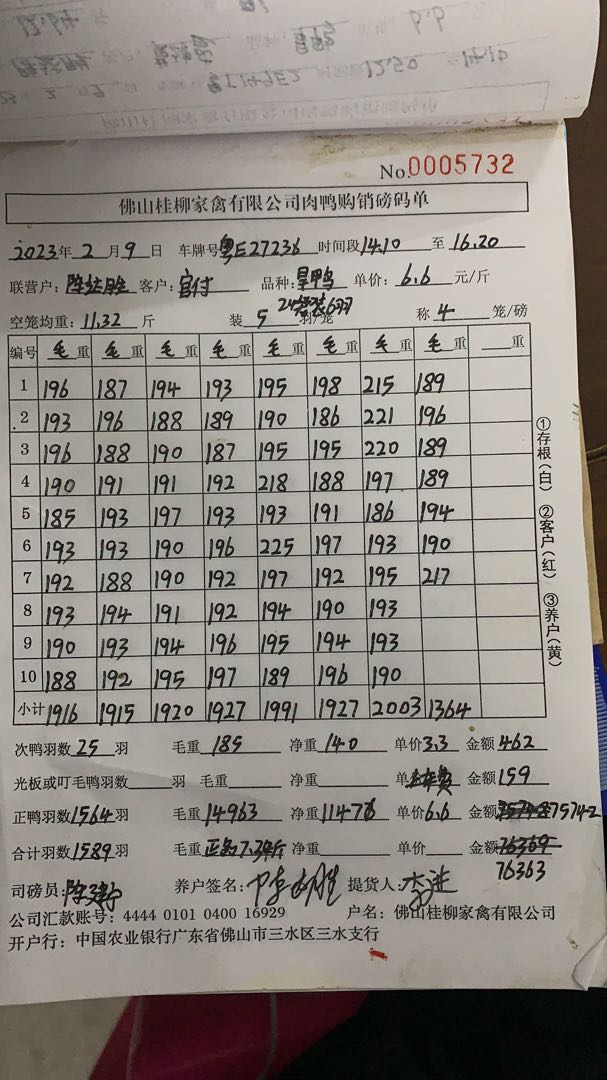 No.0005732
佛山桂柳家禽有限公司肉鸭购销磅码单
2023年 2 月 9 日 车牌号 粤E27236 时间段 14.10 至 16.20
联营户: 客户: 官付 品种: 旱鸭 单价: 6.6 元/斤
空笼均重: 11.32 斤 装 5 羽/笼 称 4 笼/磅
编号 毛重 毛重 毛重 毛重 毛重 毛重 毛重 毛重 重
1 196 187 194 193 195 198 215 189
2 193 196 188 189 190 186 221 196
3 196 188 190 187 195 195 220 189
4 190 191 191 192 218 188 197 189
5 185 193 197 193 193 191 186 194
6 193 193 190 196 225 197 193 190
7 192 188 190 192 197 192 195 217
8 193 194 191 192 194 190 193
9 190 193 194 196 195 194 193
10 188 192 195 197 189 196 190
小计 1916 1915 1920 1927 1991 1927 2003 1364
次鸭羽数 25 羽 毛重 185 净重 140 单价 3.3 金额 462
光板或叮毛鸭羽数 羽 毛重 净重 单 金额 159
正鸭羽数 1564 羽 毛重 14963 净重 11476 单价 6.6 金额 75742
合计羽数 1589 羽 毛重 正品7.3斤 净重 单价 金额
76363
司磅员: 养户签名: 提货人: 李进
公司汇款账号: 4444 0101 0400 16929 户名: 佛山桂柳家禽有限公司
开户行: 中国农业银行广东省佛山市三水区三水支行
①存根(白) ②客户(红) ③养户(黄)